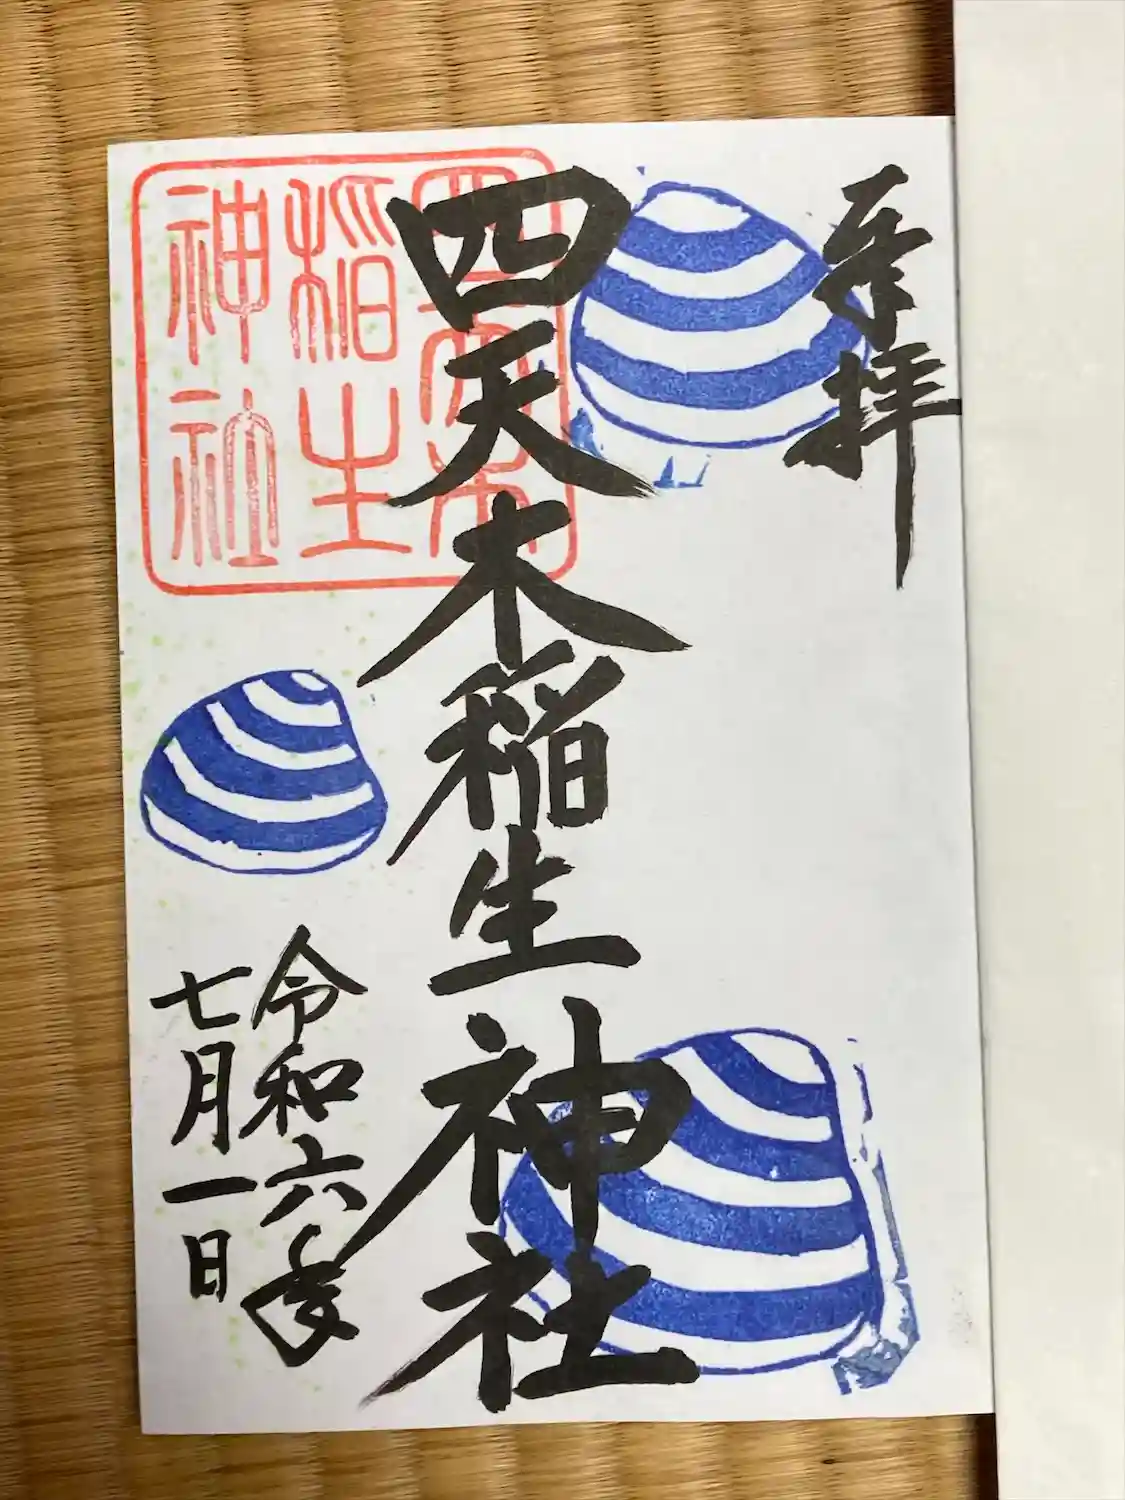 奉拝
四天木稲生神社
四天木
稲生
神社
令和六年
七月一日